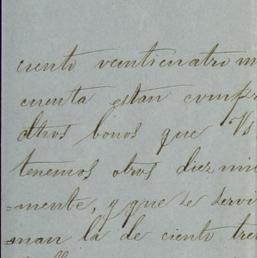 ciento veinticuatro m
cuenta estan compr
otros bonos que Vs
tenemos otros diez mil
=mente, y que se servi
=man la de ciento tre